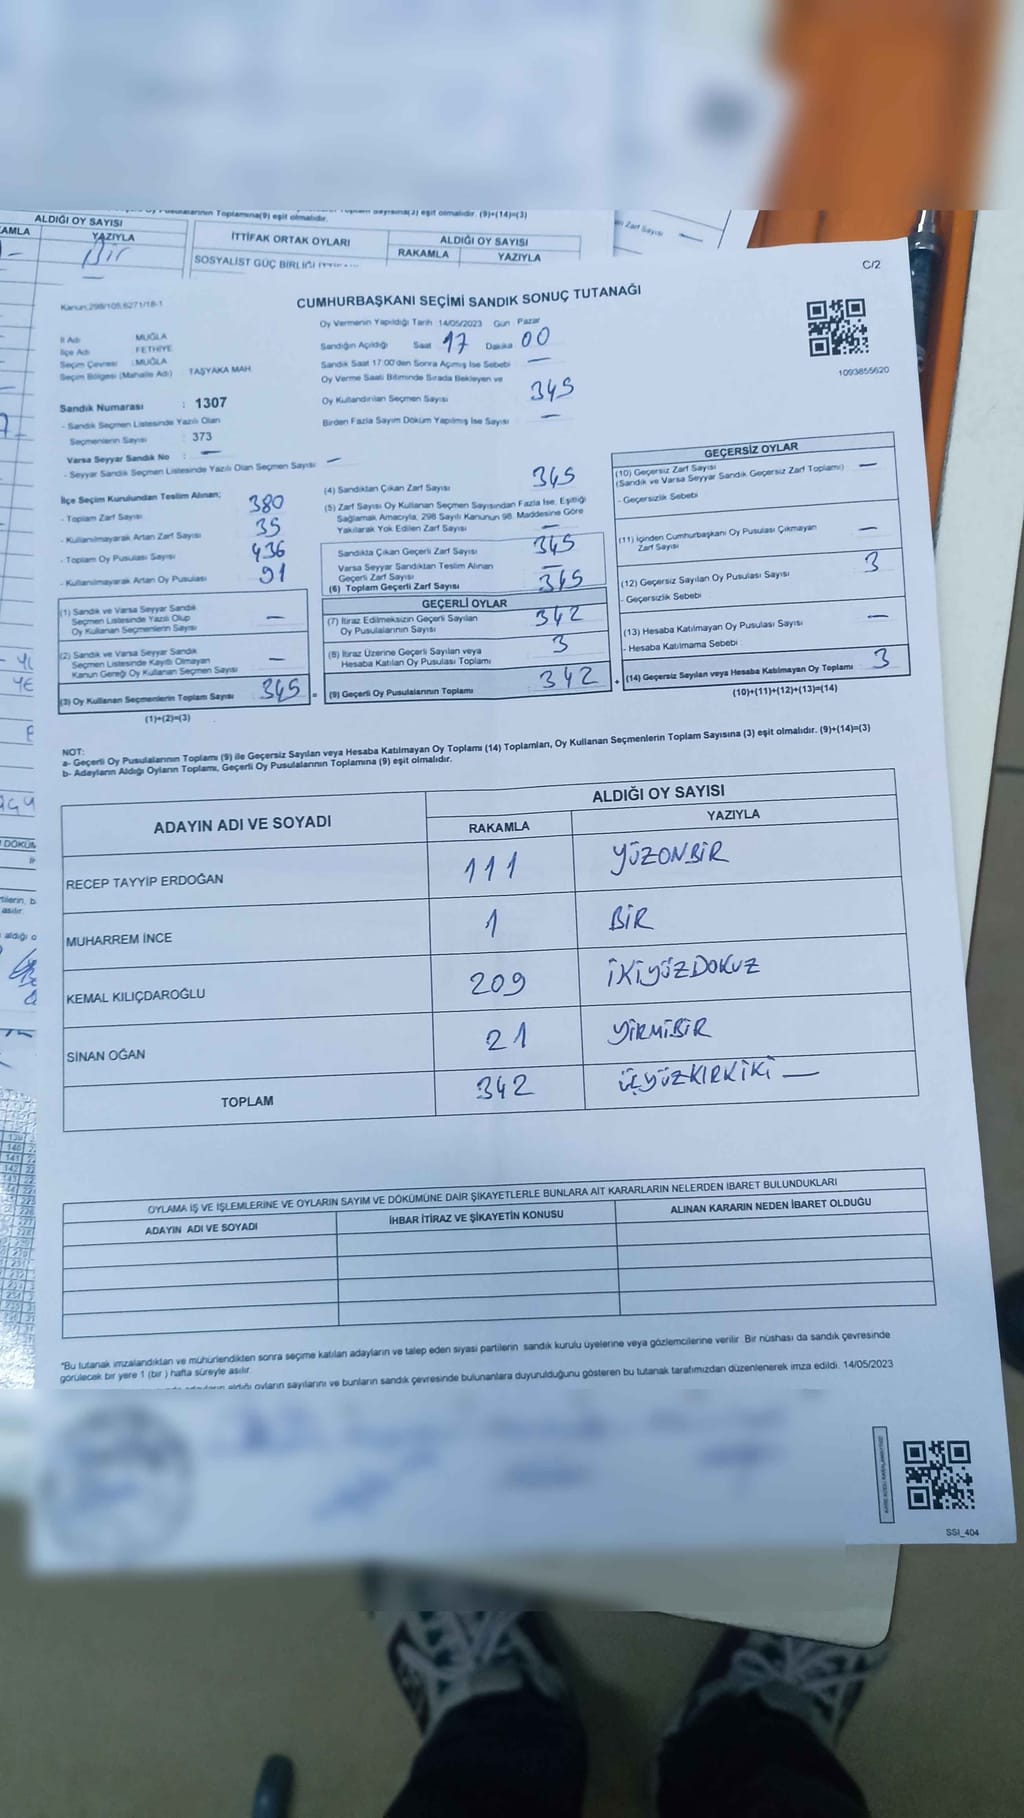 ALDIĞI OY SAYISI
YAZIYLA
Bir
İTTİFAK ORTAK OYLARI
ALDIĞI OY SAYISI
RAKAMLA
YAZIYLA
SOSYALİST GÜÇ BİRLİĞİ
Zarf Sayısı
C/2
Kanun:298/105,6271/18-1
CUMHURBAŞKANI SEÇİMİ SANDIK SONUÇ TUTANAĞI
İl Adı : MUĞLA
İlçe Adı : FETHİYE
Seçim Çevresi : MUĞLA
Seçim Bölgesi (Mahalle Adı) : TAŞYAKA MAH.
Oy Vermenin Yapıldığı Tarih :14/05/2023 Gün : Pazar
Sandığın Açıldığı Saat 17 Dakika 00
Sandık Saat 17:00'den Sonra Açılmış İse Sebebi —
Oy Verme Saati Bitiminde Sırada Bekleyen ve
Oy Kullandırılan Seçmen Sayısı 345
Birden Fazla Sayım Döküm Yapılmış İse Sayısı —
1093855620
Sandık Numarası : 1307
- Sandık Seçmen Listesinde Yazılı Olan
Seçmenlerin Sayısı : 373
Varsa Seyyar Sandık No : —
- Seyyar Sandık Seçmen Listesinde Yazılı Olan Seçmen Sayısı : —
İlçe Seçim Kurulundan Teslim Alınan;
- Toplam Zarf Sayısı 380
- Kullanılmayarak Artan Zarf Sayısı 35
- Toplam Oy Pusulası Sayısı 436
- Kullanılmayarak Artan Oy Pusulası 91
(1) Sandık ve Varsa Seyyar Sandık
Seçmen Listesinde Yazılı Olup
Oy Kullanan Seçmenlerin Sayısı —
(2) Sandık ve Varsa Seyyar Sandık
Seçmen Listesinde Kayıtlı Olmayan
Kanun Gereği Oy Kullanan Seçmen Sayısı —
(3) Oy Kullanan Seçmenlerin Toplam Sayısı 345 =
(1)+(2)=(3)
(4) Sandıktan Çıkan Zarf Sayısı 345
(5) Zarf Sayısı Oy Kullanan Seçmen Sayısından Fazla İse, Eşitliği
Sağlamak Amacıyla, 298 Sayılı Kanunun 98. Maddesine Göre
Yakılarak Yok Edilen Zarf Sayısı —
Sandıkta Çıkan Geçerli Zarf Sayısı 345
Varsa Seyyar Sandıktan Teslim Alınan
Geçerli Zarf Sayısı —
(6) Toplam Geçerli Zarf Sayısı 345
GEÇERLİ OYLAR
(7) İtiraz Edilmeksizin Geçerli Sayılan
Oy Pusulalarının Sayısı 342
(8) İtiraz Üzerine Geçerli Sayılan veya
Hesaba Katılan Oy Pusulası Toplamı 3
(9) Geçerli Oy Pusulalarının Toplamı 342 +
GEÇERSİZ OYLAR
(10) Geçersiz Zarf Sayısı
(Sandık ve Varsa Seyyar Sandık Geçersiz Zarf Toplamı) —
- Geçersizlik Sebebi
(11) İçinden Cumhurbaşkanı Oy Pusulası Çıkmayan
Zarf Sayısı —
(12) Geçersiz Sayılan Oy Pusulası Sayısı 3
- Geçersizlik Sebebi
(13) Hesaba Katılmayan Oy Pusulası Sayısı —
- Hesaba Katılmama Sebebi
(14) Geçersiz Sayılan veya Hesaba Katılmayan Oy Toplamı 3
(10)+(11)+(12)+(13)=(14)
NOT:
a- Geçerli Oy Pusulalarının Toplamı (9) ile Geçersiz Sayılan veya Hesaba Katılmayan Oy Toplamı (14) Toplamları, Oy Kullanan Seçmenlerin Toplam Sayısına (3) eşit olmalıdır. (9)+(14)=(3)
b- Adayların Aldığı Oyların Toplamı, Geçerli Oy Pusulalarının Toplamına (9) eşit olmalıdır.
ADAYIN ADI VE SOYADI
ALDIĞI OY SAYISI
RAKAMLA
YAZIYLA
RECEP TAYYİP ERDOĞAN 111 YÜZONBİR
MUHARREM İNCE 1 BİR
KEMAL KILIÇDAROĞLU 209 İKİYÜZDOKUZ
SİNAN OĞAN 21 YİRMİBİR
TOPLAM 342 ÜÇYÜZKIRKİKİ —
OYLAMA İŞ VE İŞLEMLERİNE VE OYLARIN SAYIM VE DÖKÜMÜNE DAİR ŞİKAYETLERLE BUNLARA AİT KARARLARIN NELERDEN İBARET BULUNDUKLARI
ADAYIN ADI VE SOYADI
İHBAR İTİRAZ VE ŞİKAYETİN KONUSU
ALINAN KARARIN NEDEN İBARET OLDUĞU
*Bu tutanak imzalandıktan ve mühürlendikten sonra seçime katılan adayların ve talep eden siyasi partilerin sandık kurulu üyelerine veya gözlemcilerine verilir. Bir nüshası da sandık çevresinde
görülecek bir yere 1 (bir ) hafta süreyle asılır.
aldığı oyların sayılarını ve bunların sandık çevresinde bulunanlara duyurulduğunu gösteren bu tutanak tarafımızdan düzenlenerek imza edildi. 14/05/2023
SSI_404